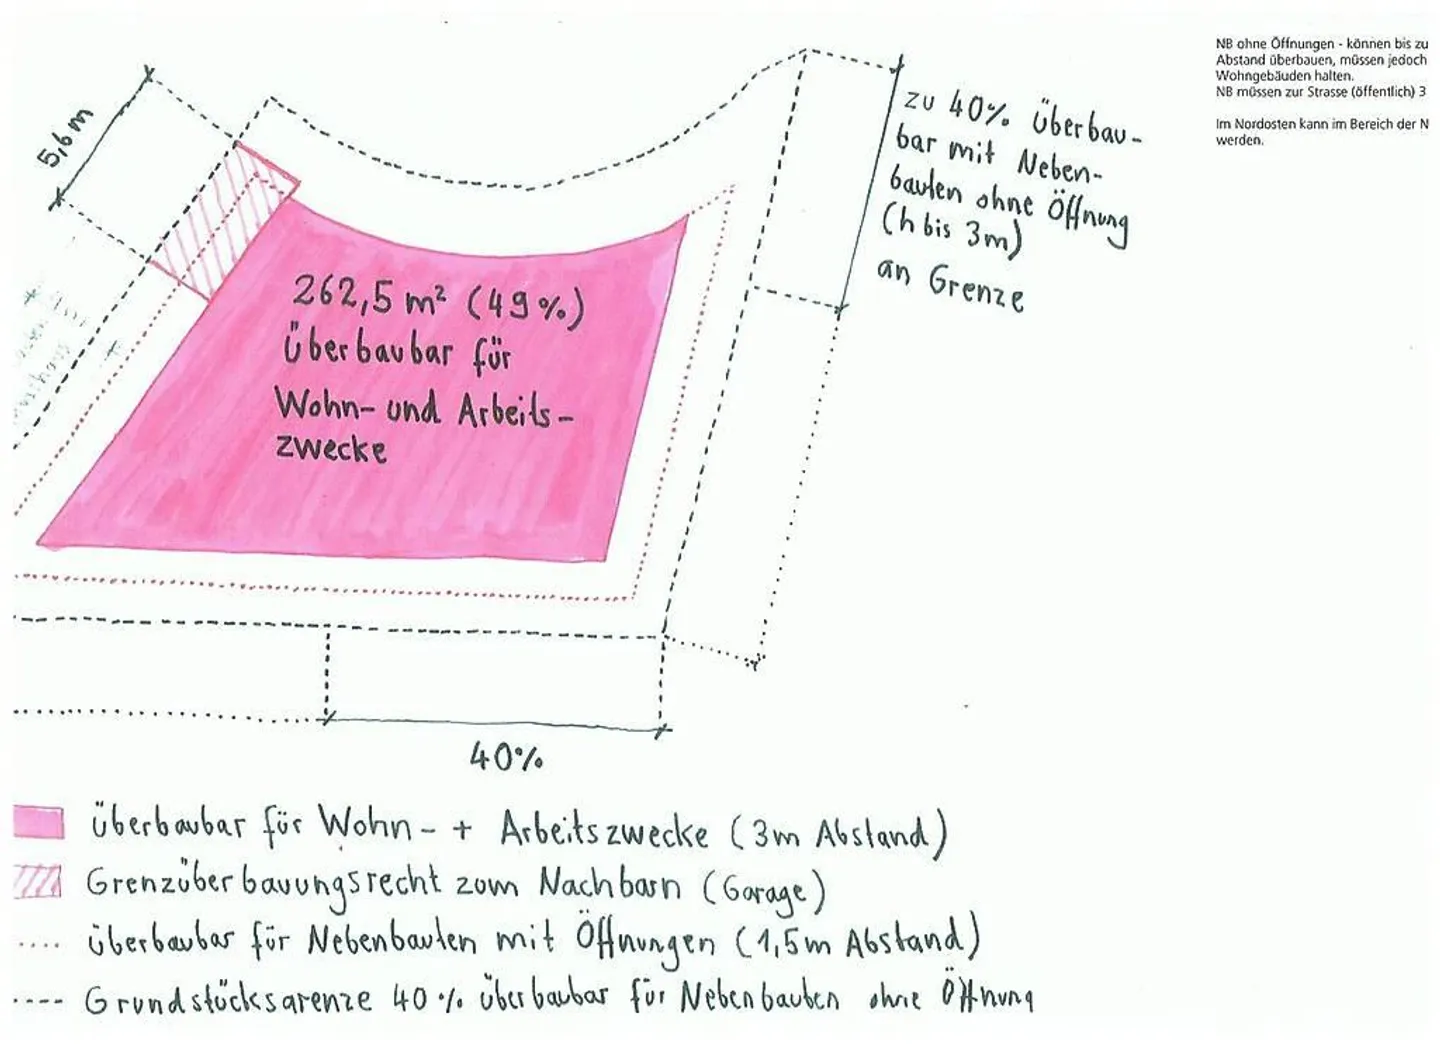 NB ohne Öffnungen - können bis zu
Abstand überbauen, müssen jedoch
Wohngebäuden halten.
NB müssen zur Strasse (öffentlich) 3
Im Nordosten kann im Bereich der N
werden.
5,6m
zu 40% überbau-
bar mit Neben-
bauten ohne Öffnung
(h bis 3m)
an Grenze
262,5 m² (49%)
überbaubar für
Wohn- und Arbeits-
zwecke
40%
überbaubar für Wohn- + Arbeitszwecke (3m Abstand)
Grenzüberbauungsrecht zum Nachbarn (Garage)
überbaubar für Nebenbauten mit Öffnungen (1,5m Abstand)
Grundstücksgrenze 40% überbaubar für Nebenbauten ohne Öffnung